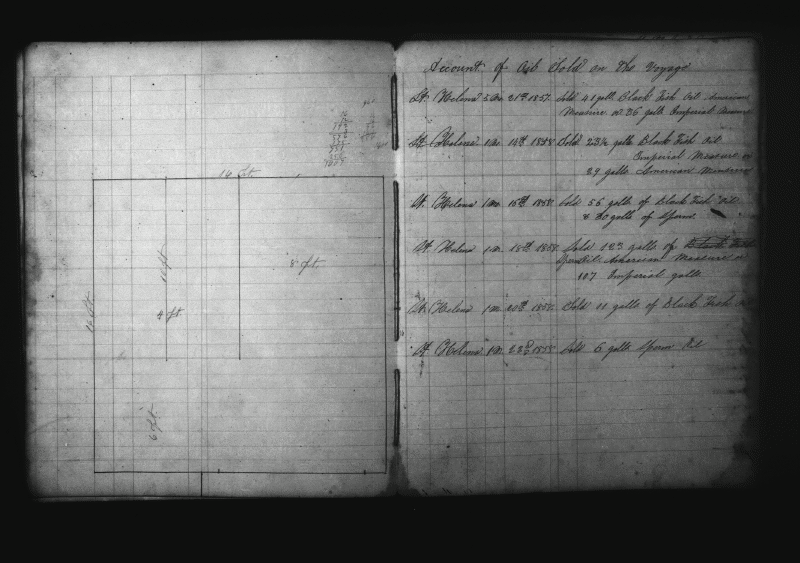 14 ft
16 ft
4 ft
8 ft
6 ft
Account of Oil Sold on the Voyage
St. Helena 5 Mo 21st 1857 Sold 41 galls Black Fish Oil American
Measure or 36 galls Imperial Measure
St. Helena 1 Mo 14th 1858 Sold 23¼ galls Black Fish Oil
Imperial Measure or
29 galls American Measure
St. Helena 1 Mo 15th 1858 Sold 56 galls of Black Fish Oil
& 20 galls of Sperm
St. Helena 1 Mo 18th 1858 Sold 123 galls of Black Fish
Sperm Oil American Measure or
107 Imperial galls
St. Helena 1 Mo 20th 1858 Sold 11 galls of Black Fish
St. Helena 1 Mo 22d 1858 Sold 6 galls Sperm Oil